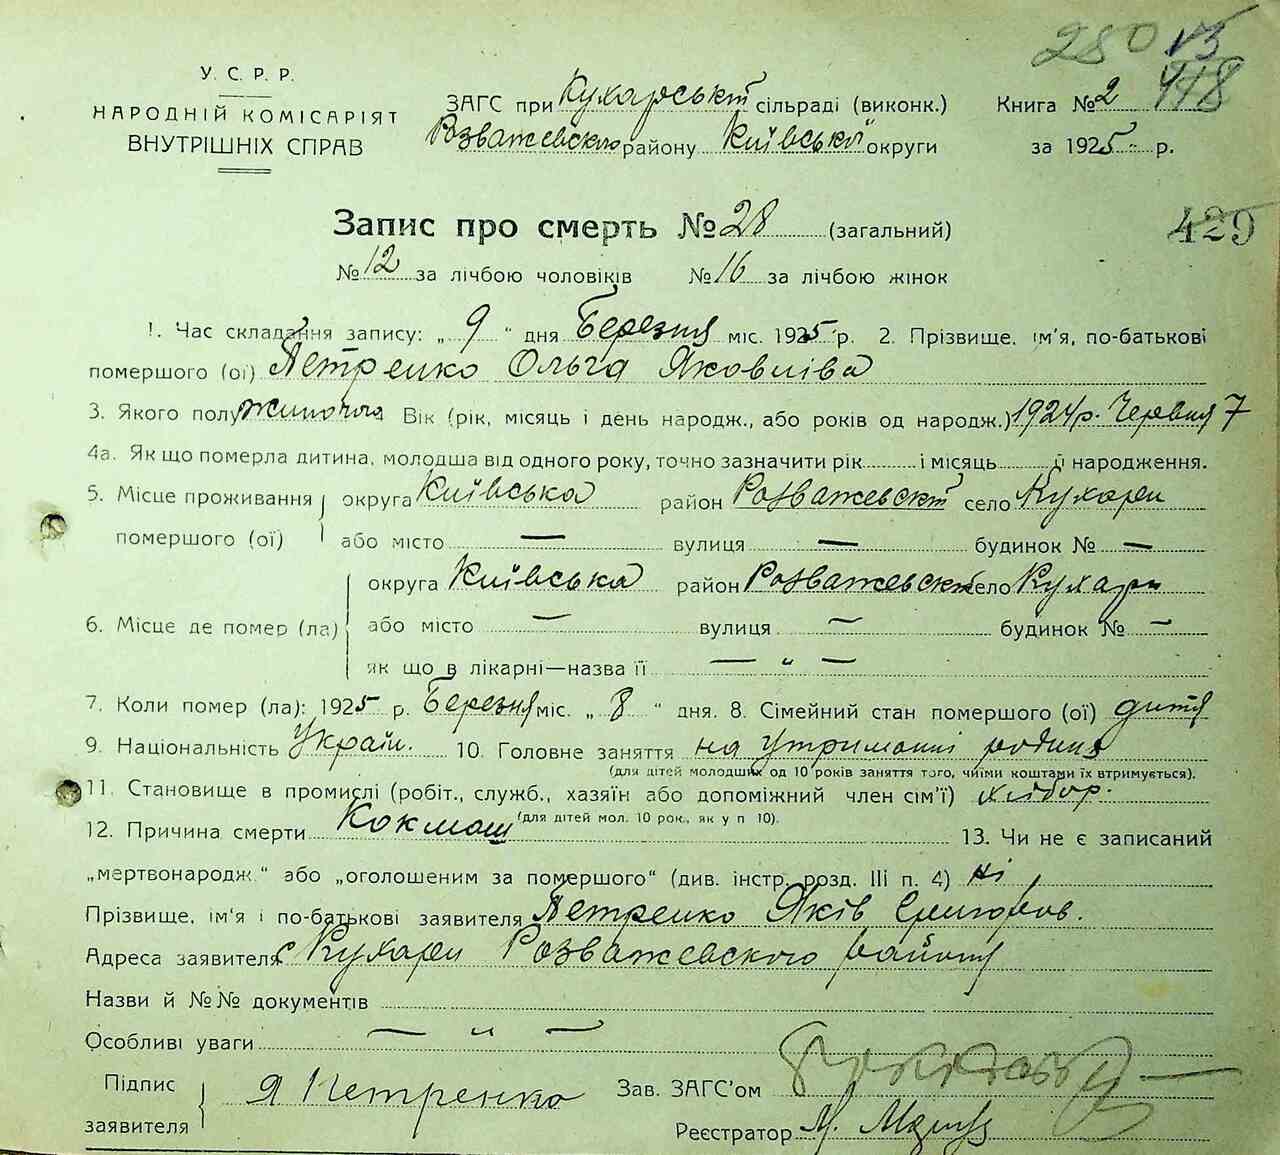 280 15
418
У. С. Р. Р.
НАРОДНІЙ КОМІСАРІЯТ
ВНУТРІШНІХ СПРАВ
ЗАГС при Кухарській сільраді (виконк.) Книга № 2
Розважевского району Київської округи за 1925 р.
429
Запис про смерть № 28 (загальний)
№ 12 за лічбою чоловіків № 16 за лічбою жінок
1. Час складання запису: „ 9 " дня Березня міс. 1925 р. 2. Прізвище, ім'я, по-батькові
помершого (ої) Петренко Ольга Яковлівa
3. Якого полу жиноча Вік (рік, місяць і день народж., або років од народж.) 1924 р. Червня 7
4а. Як що померла дитина, молодша від одного року, точно зазначити рік і місяць її народження.
5. Місце проживання помершого (ої) округа Київська район Розважевскій село Кухари
або місто — вулиця — будинок № —
6. Місце де помер (ла) округа Київська район Розважевскій село Кухари
або місто — вулиця — будинок № —
як що в лікарні—назва її — „ —
7. Коли помер (ла): 1925 р. Березня міс. „ 8 " дня. 8. Сімейний стан помершого (ої) дитя
9. Національність Україн. 10. Головне заняття на утриманні родини
(для дітей молодших од 10 років заняття того, чиїми коштами їх втримується).
11. Становище в промислі (робіт., служб., хазяїн або допоміжний член сім'ї) хлібор.
(для дітей мол. 10 рок., як у п 10).
12. Причина смерти Кокмош 13. Чи не є записаний
„мертвонародж." або „оголошеним за помершого" (див. інстр. розд. III п. 4) ні
Прізвище, ім'я і по-батькові заявителя Петренко Яків Григоров.
Адреса заявителя с Кухари Розважевского району
Назви й №№ документів
Особливі уваги — „ —
Підпис заявителя Я Петренко Зав. ЗАГС'ом
Реєстратор М.